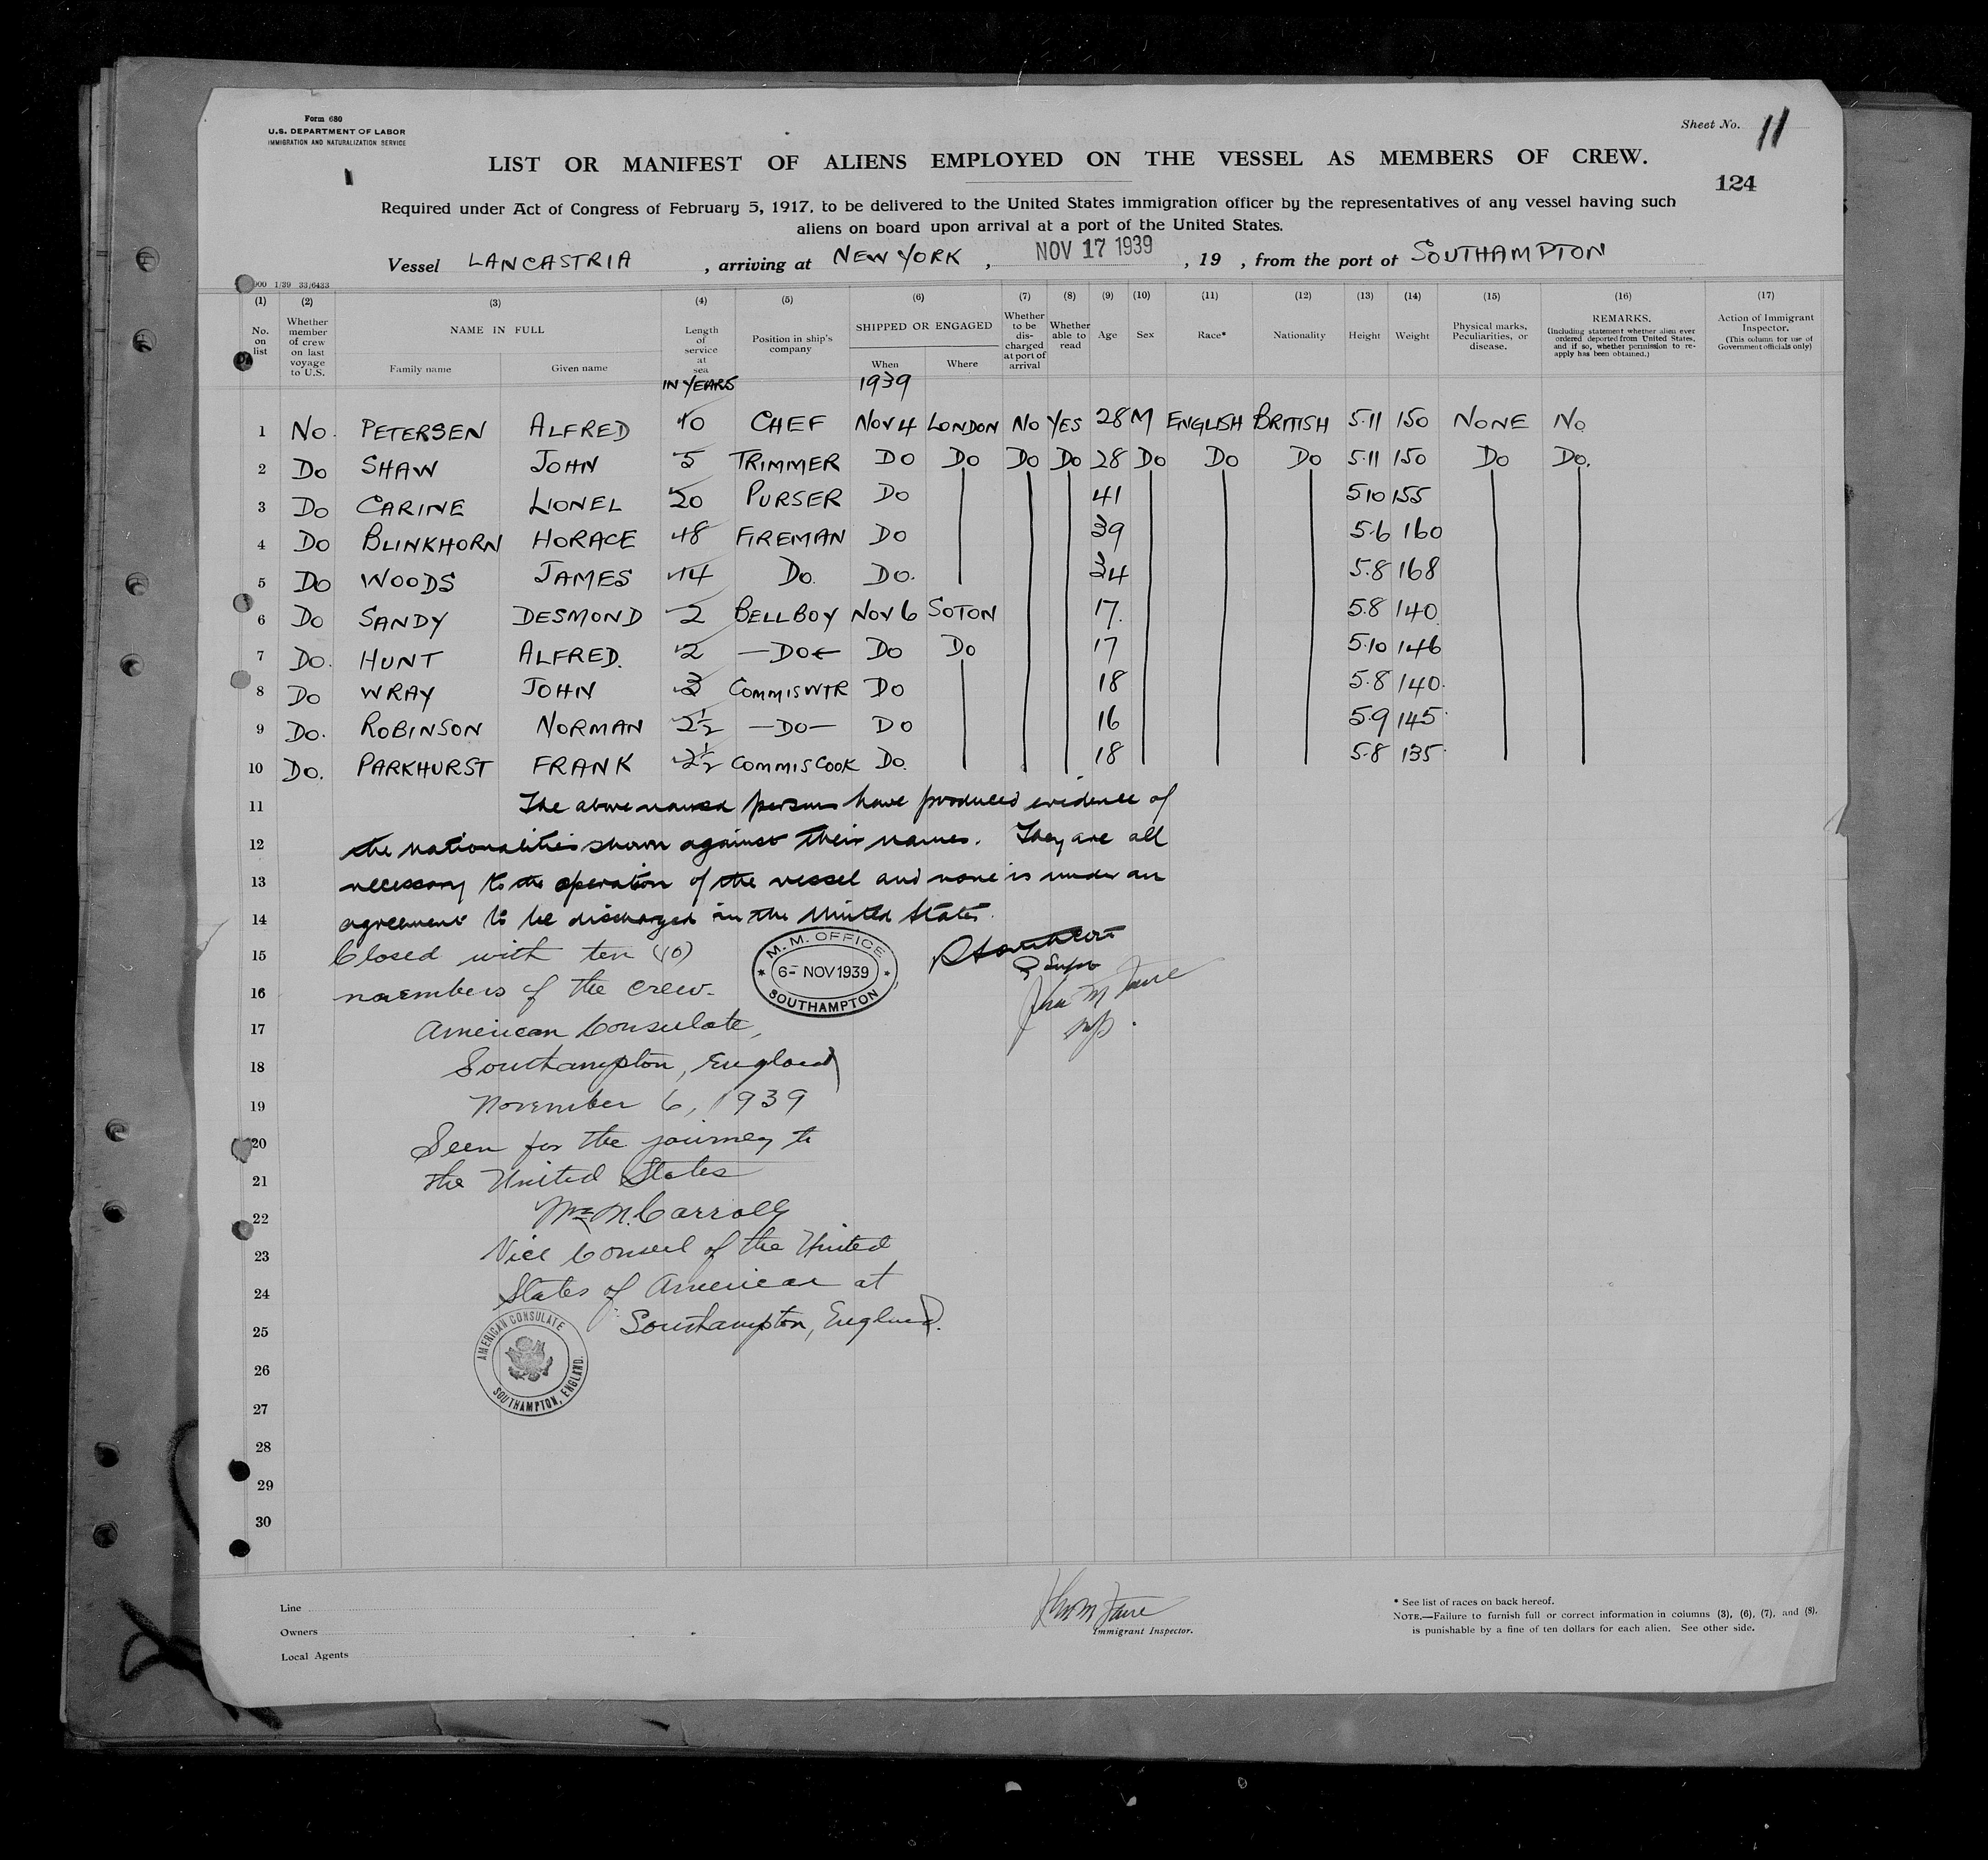 Form 680
U.S. DEPARTMENT OF LABOR
IMMIGRATION AND NATURALIZATION SERVICE
Sheet No. 11
LIST OR MANIFEST OF ALIENS EMPLOYED ON THE VESSEL AS MEMBERS OF CREW.
124
Required under Act of Congress of February 5, 1917, to be delivered to the United States immigration officer by the representatives of any vessel having such
aliens on board upon arrival at a port of the United States.
Vessel LANCASTRIA, arriving at NEW YORK, NOV 17 1939, 19 , from the port of SOUTHAMPTON
1/39 33/6433
(1) (2) (3) (4) (5) (6) (7) (8) (9) (10) (11) (12) (13) (14) (15) (16) (17)
No. on list Whether member of crew on last voyage to U.S. NAME IN FULL Family name Given name Length of service at sea Position in ship's company SHIPPED OR ENGAGED When Where Whether to be discharged at port of arrival Whether able to read Age Sex Race* Nationality Height Weight Physical marks, Peculiarities, or disease. REMARKS. (Including statement whether alien ever ordered deported from United States, and if so, whether permission to re-apply has been obtained.) Action of Immigrant Inspector. (This column for use of Government officials only)
IN YEARS 1939
1 No. PETERSEN ALFRED 10 CHEF NOV 4 LONDON NO YES 28 M ENGLISH BRITISH 5.11 150 NONE NO
2 DO SHAW JOHN 5 TRIMMER DO DO DO DO 28 DO DO DO 5.11 150 DO DO.
3 DO CARINE LIONEL 20 PURSER DO 41 5.10 155
4 DO BLINKHORN HORACE 18 FIREMAN DO 39 5.6 160
5 DO WOODS JAMES 14 DO. DO. 34 5.8 168
6 DO SANDY DESMOND 2 BELLBOY NOV 6 SOTON 17. 5.8 140
7 DO. HUNT ALFRED. 2 —DO— DO DO 17 5.10 146
8 DO WRAY JOHN 3 COMMIS WTR DO 18 5.8 140.
9 DO. ROBINSON NORMAN 2½ —DO— DO 16 5.9 145
10 DO. PARKHURST FRANK 2½ COMMIS COOK DO. 18 5.8 135
11 The above named persons have produced evidence of
12 the nationalities shown against their names. They are all
13 necessary to the operation of the vessel and none is under an
14 agreement to be discharged in the United States.
15 Closed with ten (10)
16 members of the crew.
M.M. OFFICE
6- NOV 1939
SOUTHAMPTON
17 American Consulate,
18 Southampton, England
19 November 6, 1939
20 Seen for the journey to
21 the United States
22 Wm M. Carroll
23 Vice Consul of the United
24 States of American at
25 Southampton, England.
AMERICAN CONSULATE
SOUTHAMPTON, ENGLAND.
26
27
28
29
30
Line
Owners
Local Agents
Immigrant Inspector.
* See list of races on back hereof.
NOTE.—Failure to furnish full or correct information in columns (3), (6), (7), and (8),
is punishable by a fine of ten dollars for each alien. See other side.